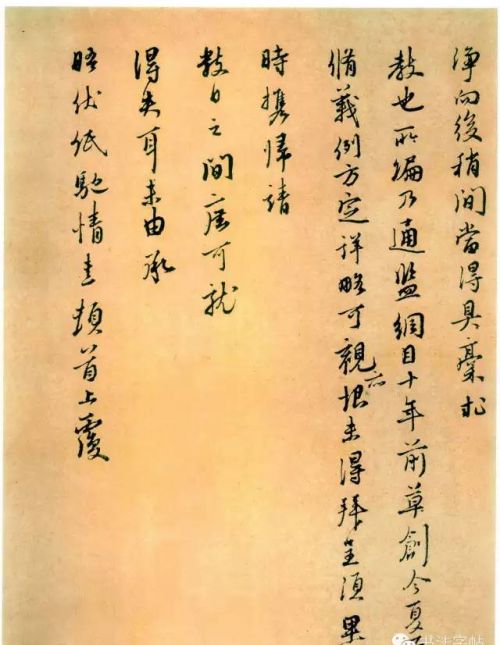 淨向後稍间當得具稾求
教也所编乃通鑑綱目十年前草創今夏再
脩義例方定詳略可觀亦恨未得拜呈須異
時攜歸請
數日之間庶可就
得失耳未由承
晤伏紙馳情熹頓首上覆
书法字帖